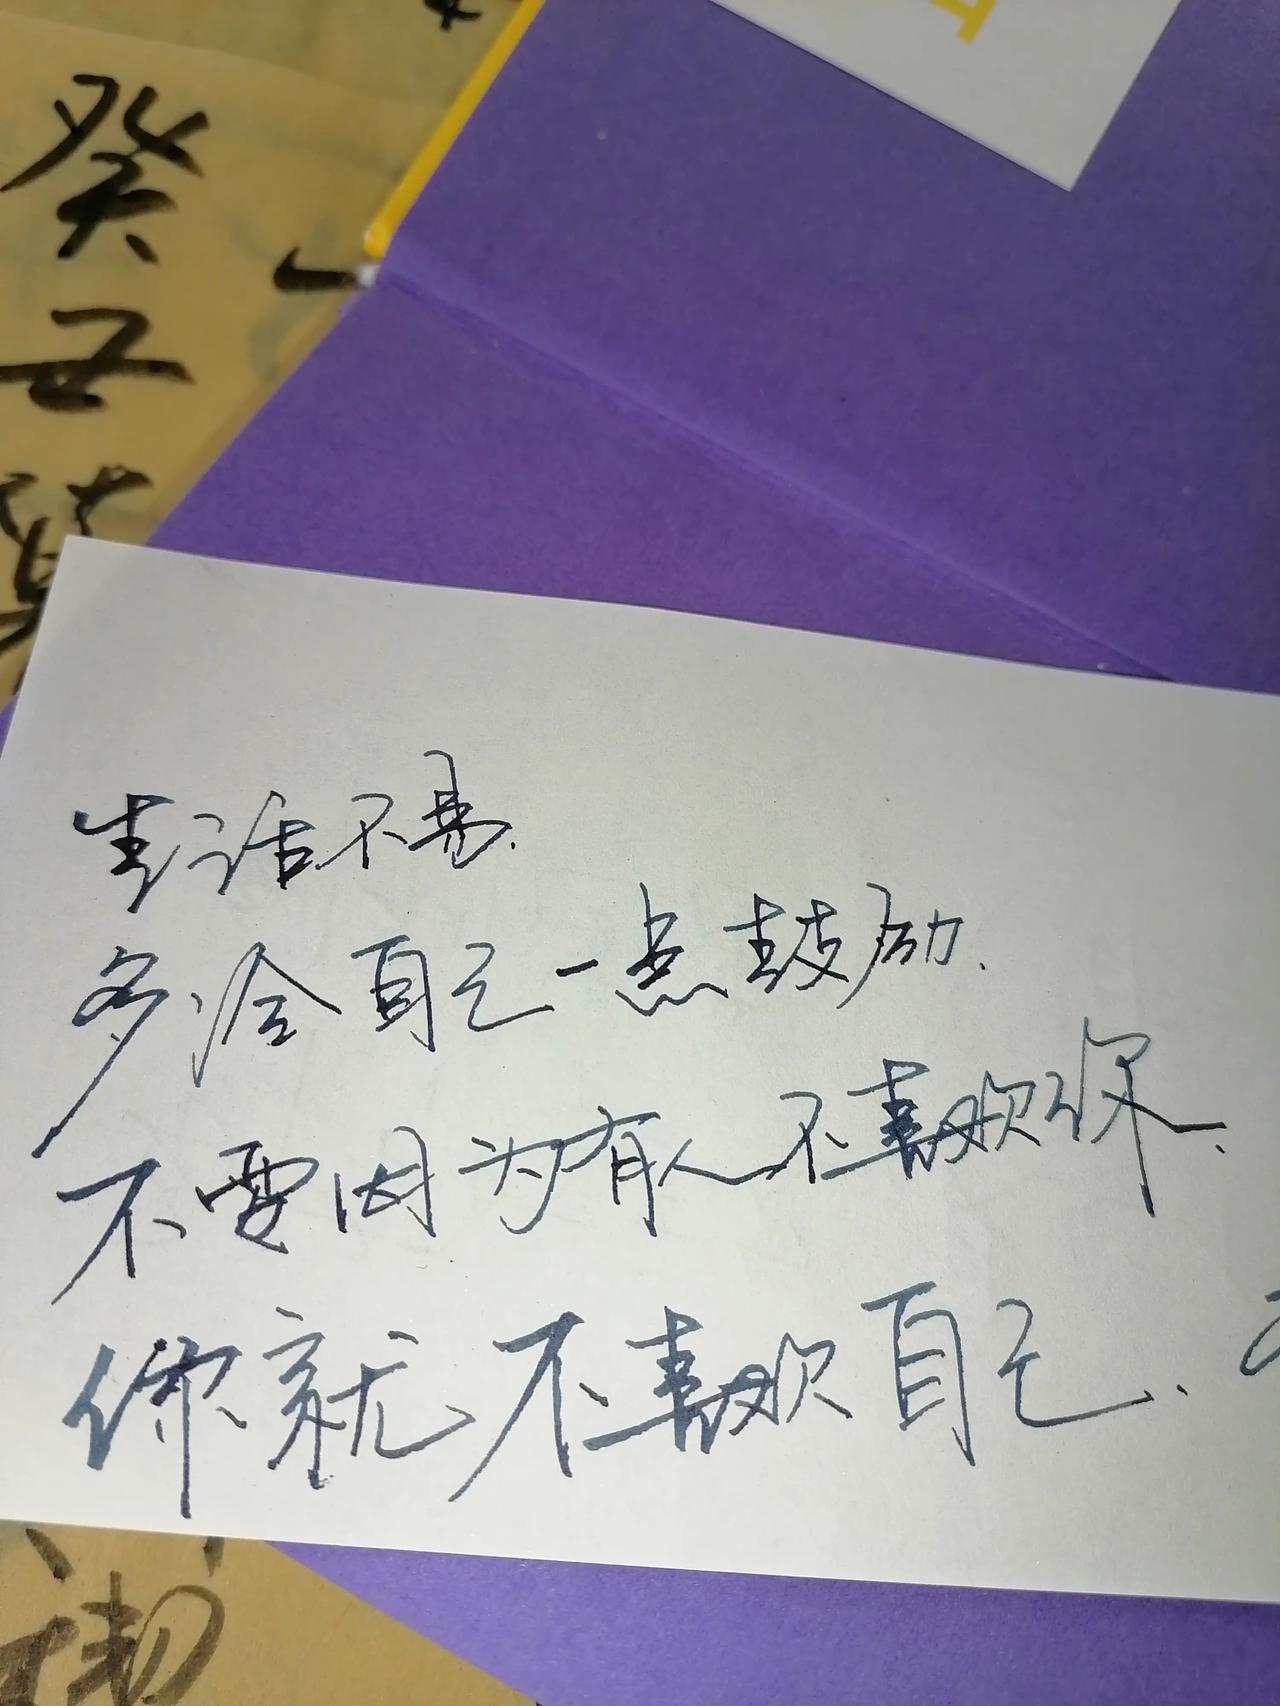 生活不易.
多给自己一点鼓励.
不要因为有人不喜欢你.
你就不喜欢自己.
癸丑